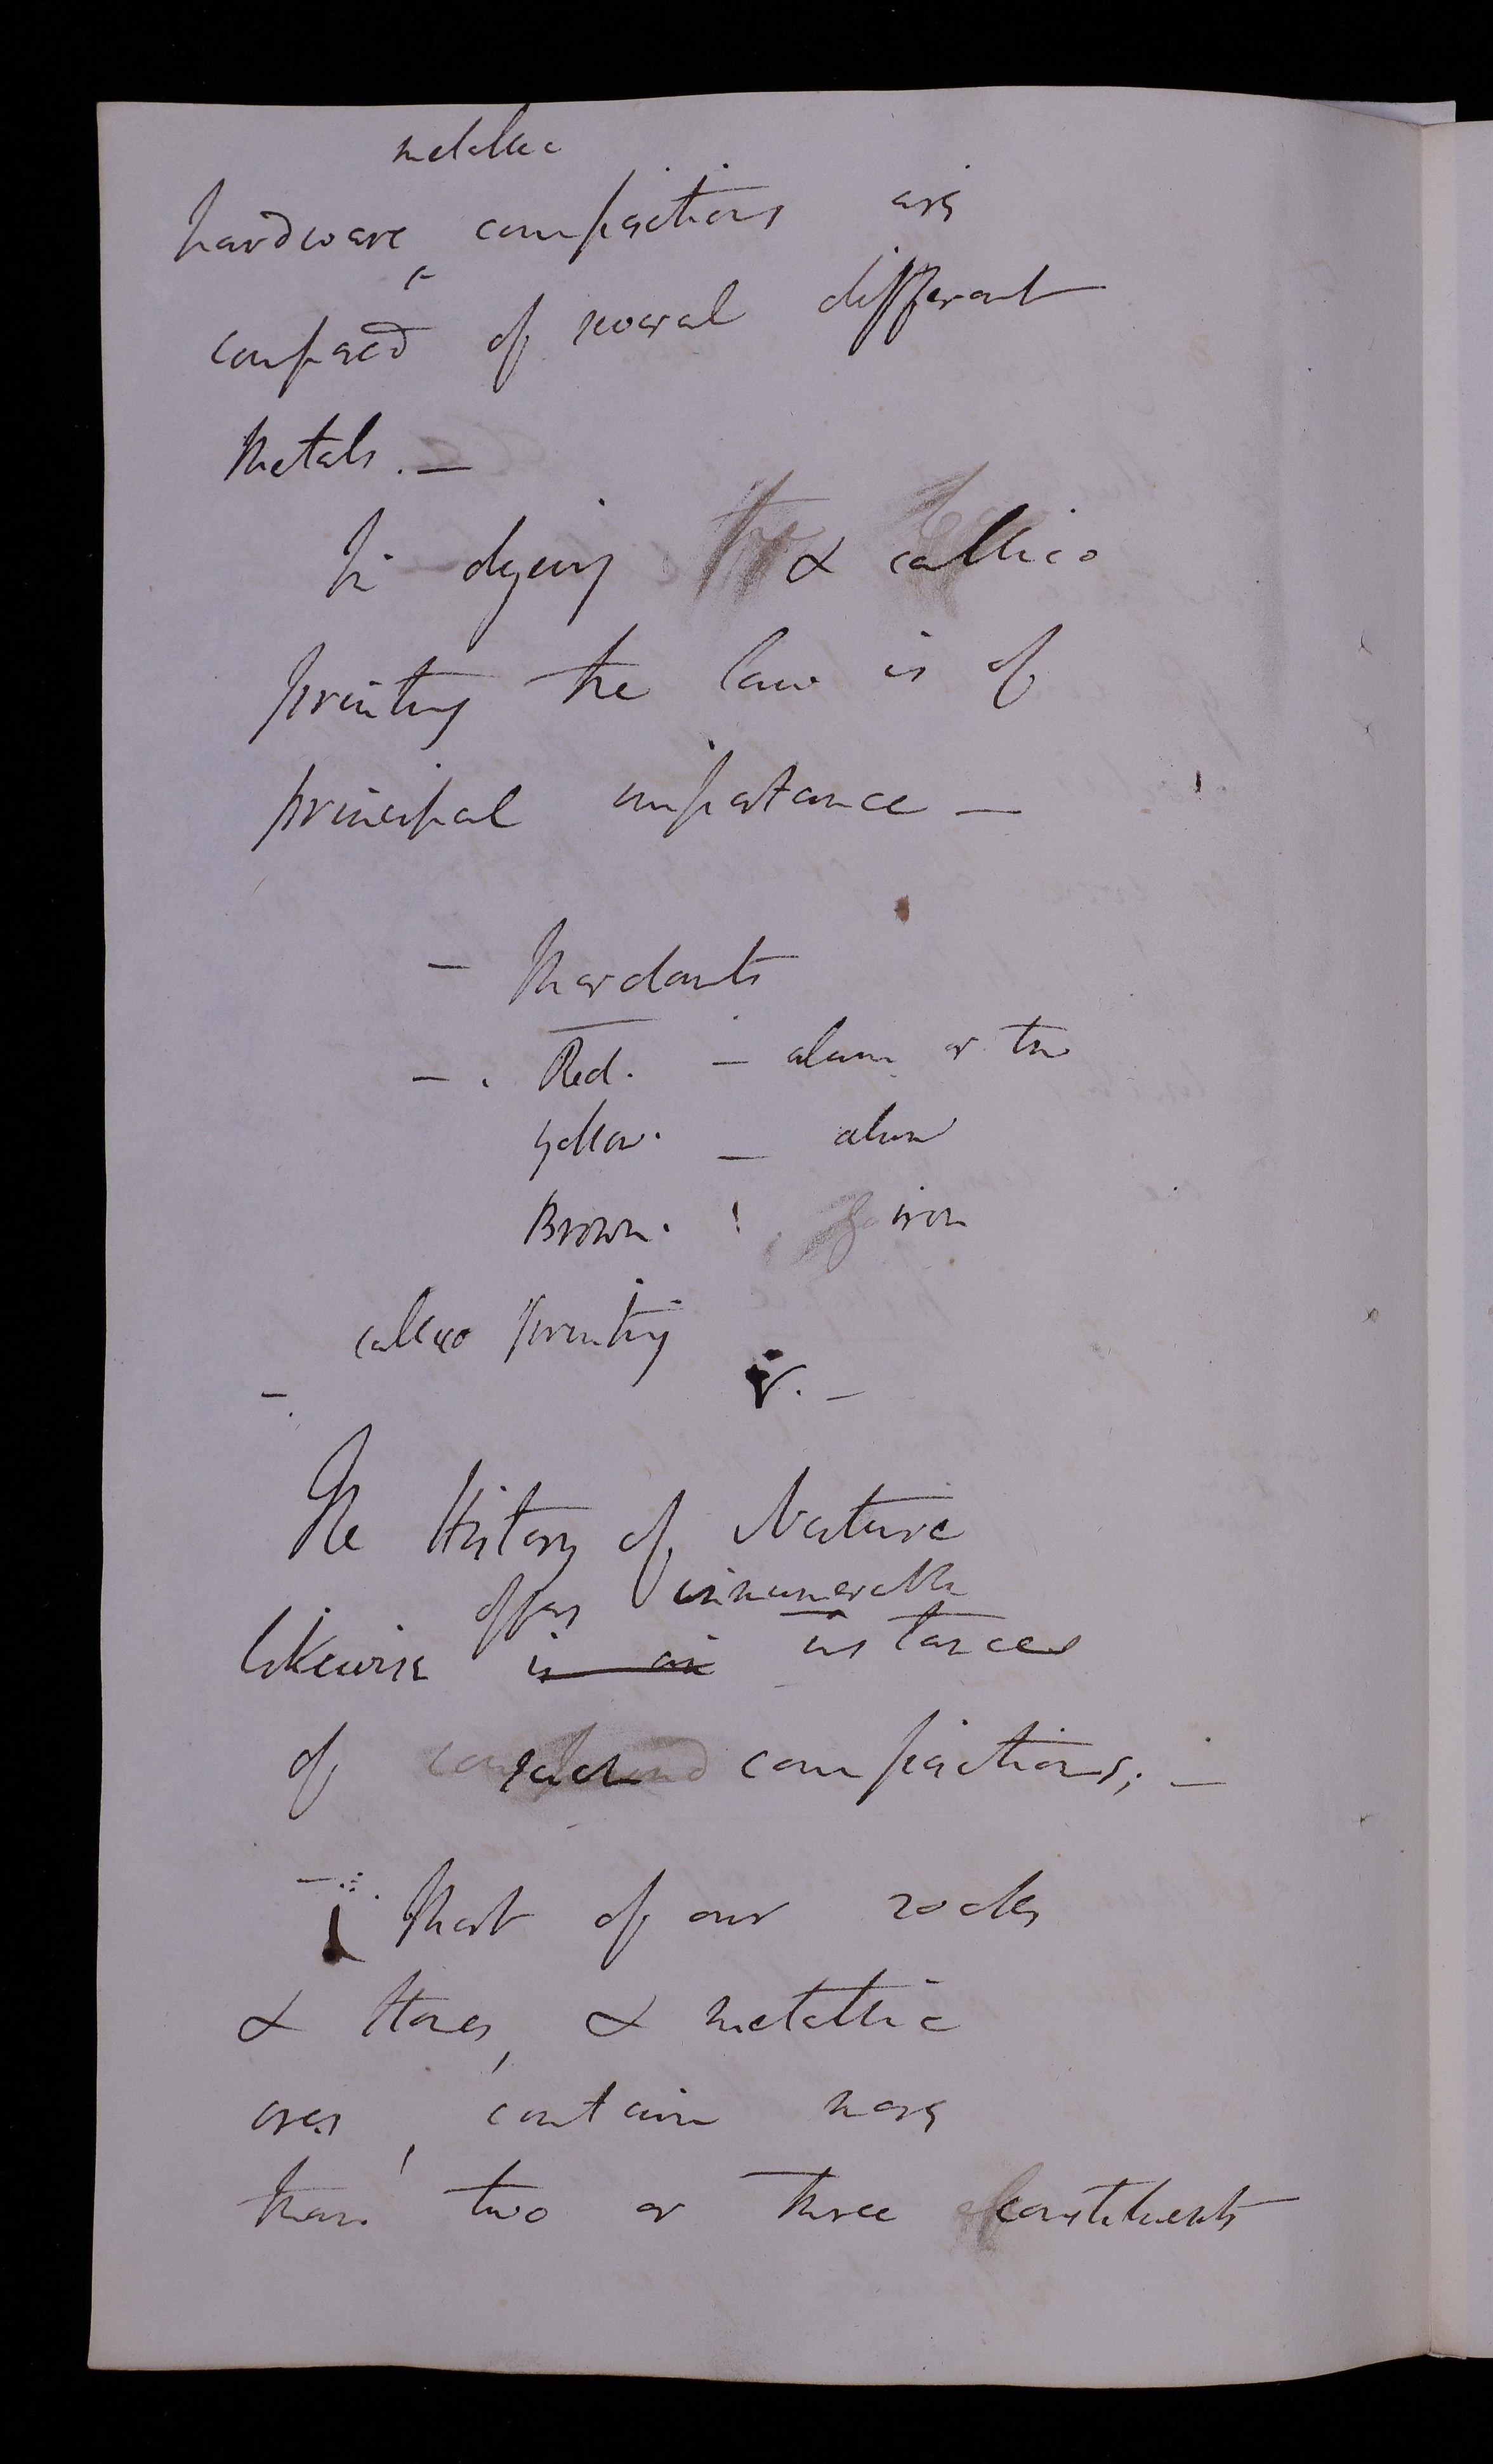 metallic
hardware ^ compositions are
composed of several different
Metals. —
In dying & callico
printing the law is of
principal importance —
— Mordants
— . Red. — alum or tin
Yellow. — alum
Brown. iron
callico printing
—. —
The History of Nature
offers innumerable
likewise is an instances
of such compositions; —
— Most of our rocks
& stones, & metallic
ores, contain more
than two or three constituents